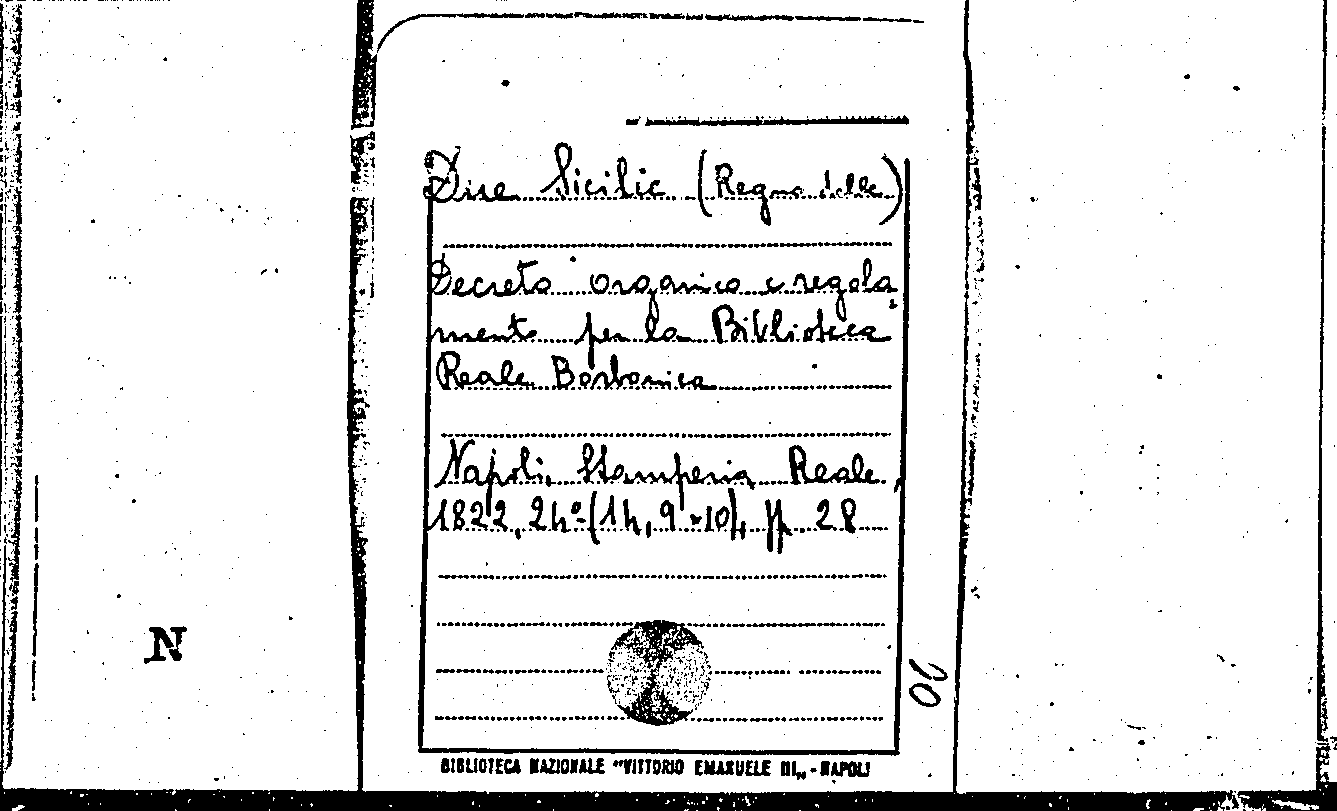 Due Sicilie (Regno delle)
Decreto organico e regola
mento per la Biblioteca
Reale Borbonica
Napoli, Stamperia Reale,
1822, 24º-(14, 9×10), pp 28
N
BIBLIOTECA NAZIONALE "VITTORIO EMANUELE III„ - NAPOLI